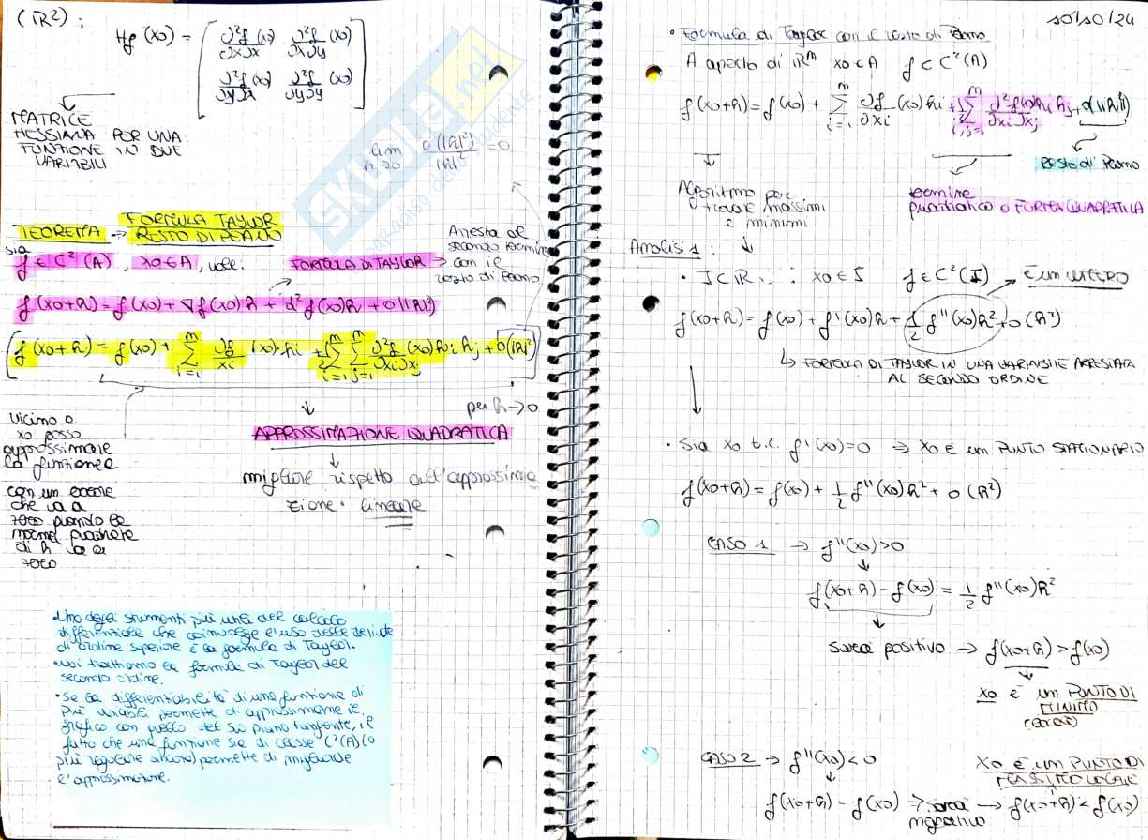 (ℝ²):
Hf(x₀) = [ ∂²f/∂x∂x (x₀)  ∂²f/∂x∂y (x₀)
∂²f/∂y∂x (x₀)  ∂²f/∂y∂y (x₀) ]
MATRICE
HESSIANA PER UNA
FUNZIONE IN DUE
VARIABILI
lim h→0 o(|h|²)/|h|² = 0
TEOREMA → FORMULA TAYLOR
RESTO DI PEANO
sia
f ∈ C²(A), x₀ ∈ A, vale:
FORMULA DI TAYLOR →
Arresta al
secondo termine
con il
resto di Peano
f(x₀+h) = f(x₀) + ∇f(x₀)h + d²f(x₀)h + o(|h|²)
[f(x₀+h) = f(x₀) + Σ_{i=1}^{m} ∂f/xi (x₀)hi + ½ Σ_{i=1}^{m} Σ_{j=1}^{m} ∂²f/∂xi∂xj (x₀) hi hj + o(|h|²)]
per h→0
Vicino a
x₀ posso
approssimare
la funzione
con un errore
che va a
zero quando la
norma quadrata
di h va a
zero
↓
APPROSSIMAZIONE QUADRATICA
↓
migliore rispetto all'approssima
zione lineare
• Uno degli strumenti più utili del calcolo
differenziale che coinvolge l'uso delle derivate
di ordine superiore è la formula di Taylor.
• noi trattiamo la formula di Taylor del
secondo ordine.
• Se la differenziabilità di una funzione di
più variabili permette di approssimare il
grafico con quello del suo piano tangente, il
fatto che una funzione sia di classe C²(A) (o
più regolare ancora) permette di migliorare
l'approssimazione.
10/10/24
• Formula di Taylor con il resto di Peano
A aperto di ℝᵐ x₀ ∈ A f ∈ C²(A)
f(x₀+h) = f(x₀) + Σ_{i=1}^{m} ∂f/∂xi (x₀) hi + ½ Σ_{i,j=1}^{m} ∂²f(x₀)/∂xi∂xj hi hj + o(|h|²)
Resto di Peano
termine
quadratico o FORMA QUADRATICA
Algoritmo per
trovare massimi
e minimi
Analisi 1
• I ⊂ ℝ, x₀ ∈ I f ∈ C²(I) → È UN NUMERO
f(x₀+h) = f(x₀) + f'(x₀)h + ½ f''(x₀)h² + o(h²)
↳ FORMULA DI TAYLOR IN UNA VARIABILE ARRESTATA
AL SECONDO ORDINE
• Sia x₀ t.c. f'(x₀)=0 ⇒ x₀ è un PUNTO STAZIONARIO
f(x₀+h) = f(x₀) + ½ f''(x₀)h² + o(h²)
CASO 1 → f''(x₀)>0
↓
f(x₀+h) - f(x₀) = ½ f''(x₀)h²
↓
sarà positivo → f(x₀+h) > f(x₀)
↓
x₀ è un PUNTO DI
MINIMO
(locale)
CASO 2 → f''(x₀)<0
↓
f(x₀+h) - f(x₀) → sarà
negativo → f(x₀+h) < f(x₀)
x₀ è un PUNTO DI
MASSIMO LOCALE
SKUOLA.net